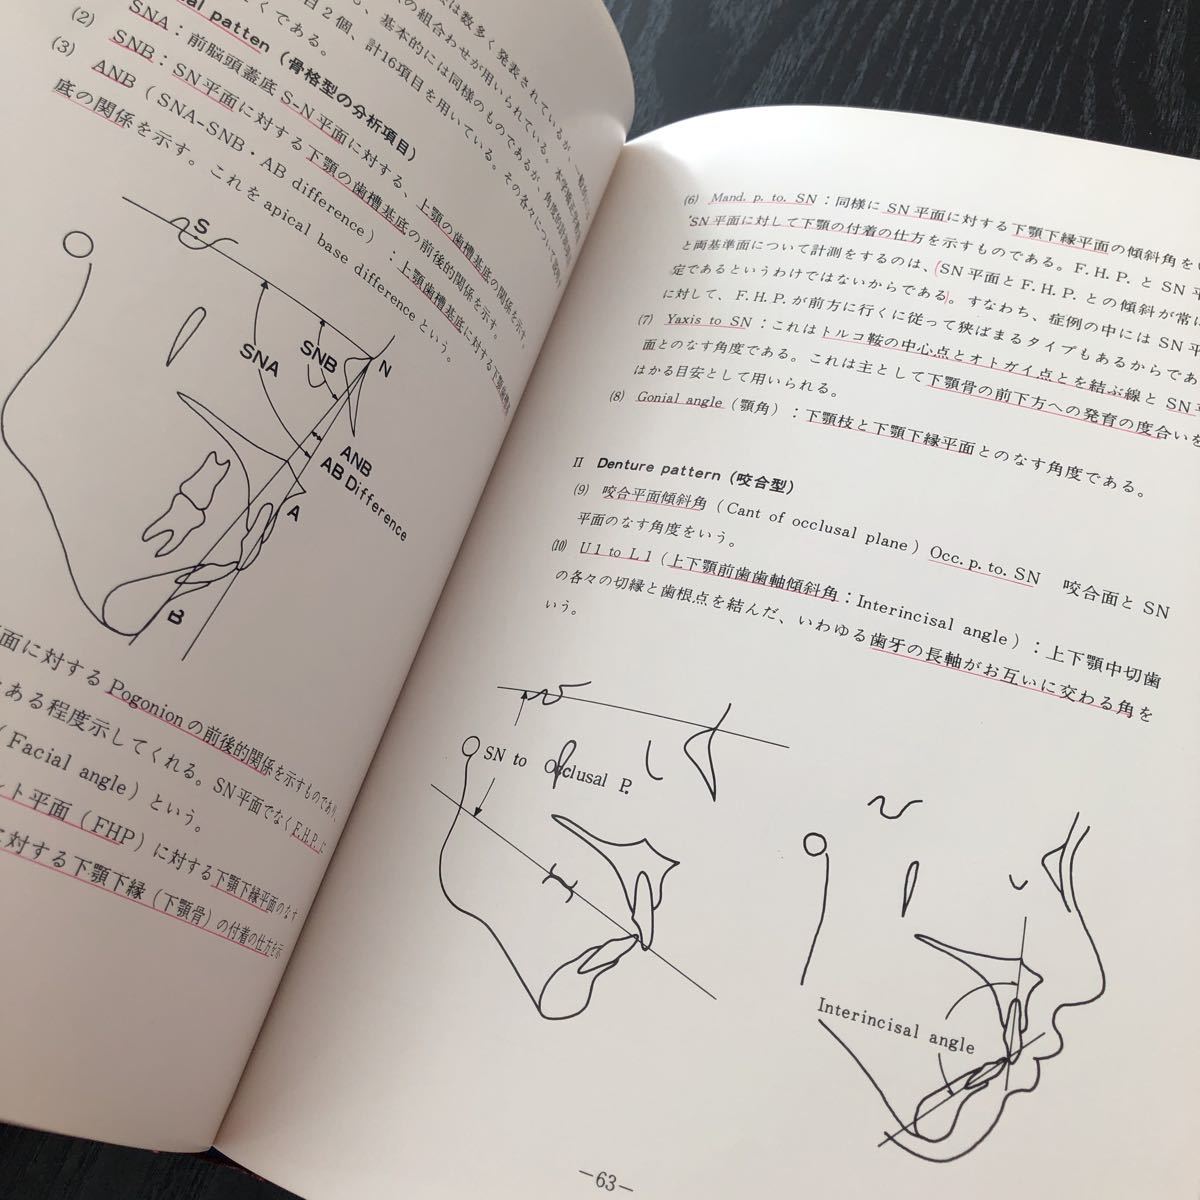 は数多く発表されているが、一般的に
の組合わせが用いられている。本学矯正学教
も、基本的には同様のものであるが、角度的計測項
目2個、計16項目を用いている。その各々について説明
くである。
al patten (骨格型の分析項目)
SNA：前脳頭蓋底S-N平面に対する、上顎の歯槽基底の関係を示す。
(2) SNB：SN平面に対する下顎の歯槽基底の前後的関係を示す。
(3) ANB (SNA-SNB・AB difference)：上顎歯槽基底に対する下顎歯槽基
底の関係を示す。これをapical base differenceという。
S
N
SNA
SNB
ANB
AB Difference
A
B
面に対するPogonionの前後的関係を示すものであり、
ある程度示してくれる。SN平面でなくF.H.P.に
(Facial angle) という。
ルト平面 (FHP) に対する下顎下縁平面のなす
に対する下顎下縁 (下顎骨) の付着の仕方を示
(6) Mand. p. to. SN：同様にSN平面に対する下顎下縁平面の傾斜角をい
SN平面に対して下顎の付着の仕方を示すものである。F.H.P.とSN平
と両基準面について計測をするのは、SN平面とF.H.P.との傾斜が常に
定であるというわけではないからである。すなわち、症例の中にはSN平
に対して、F.H.P.が前方に行くに従って狭ばまるタイプもあるからであ
(7) Yaxis to SN：これはトルコ鞍の中心点とオトガイ点とを結ぶ線とSN平
面とのなす角度である。これは主として下顎骨の前下方への発育の度合いを
はかる目安として用いられる。
(8) Gonial angle (顎角)：下顎枝と下顎下縁平面とのなす角度である。
II Denture pattern (咬合型)
(9) 咬合平面傾斜角 (Cant of occlusal plane) Occ. p. to. SN 咬合面とSN
平面のなす角度をいう。
(10) U1 to L1 (上下顎前歯歯軸傾斜角：Interincisal angle)：上下顎中切歯
の各々の切縁と歯根点を結んだ、いわゆる歯牙の長軸がお互いに交わる角を
いう。
SN to Occlusal P.
Interincisal angle
—63—